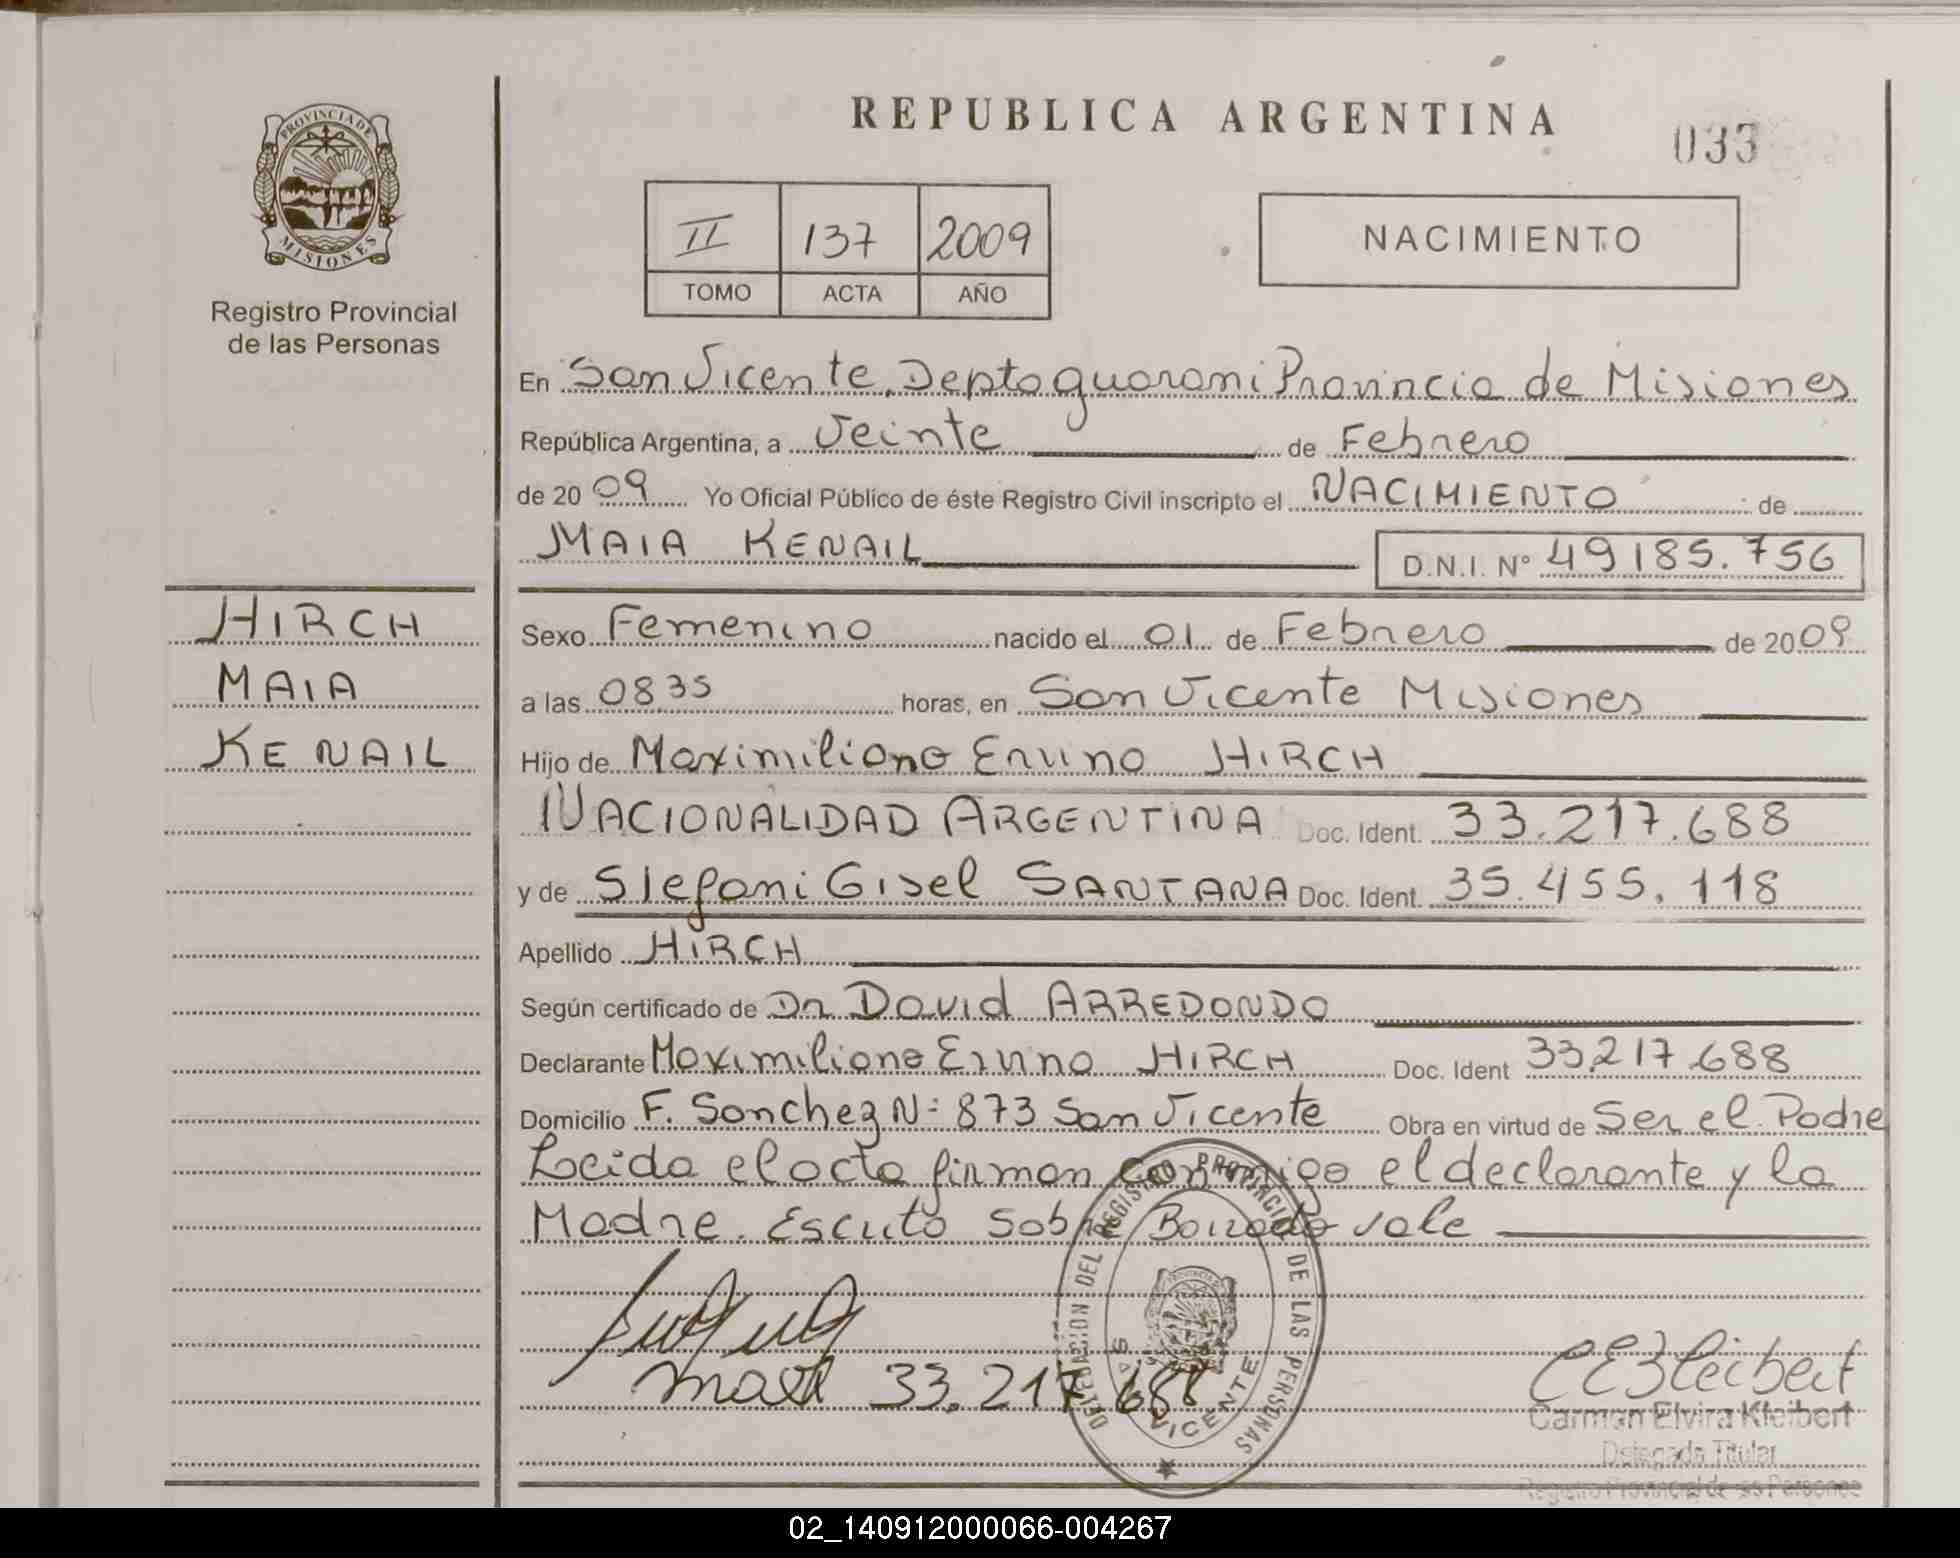 PROVINCIA DE
MISIONES
Registro Provincial
de las Personas
REPUBLICA ARGENTINA
033
II 137 2009
TOMO ACTA AÑO
NACIMIENTO
En San Vicente, Depto guarani Provincia de Misiones
República Argentina, a Veinte de Febrero
de 20 09 Yo Oficial Público de éste Registro Civil inscripto el NACIMIENTO de
MAIA KENAIL D.N.I. Nº 49185.756
HIRCH
MAIA
KENAIL
Sexo Femenino nacido el 01 de Febrero de 2009
a las 0835 horas, en San Vicente Misiones
Hijo de Maximiliano Ervino HIRCH
NACIONALIDAD ARGENTINA Doc. Ident. 33.217.688
y de Stefani Gisel SANTANA Doc. Ident. 35.455.118
Apellido HIRCH
Según certificado de Dr David ARREDONDO
Declarante Maximiliano Ervino HIRCH Doc. Ident 33.217.688
Domicilio F. Sanchez N= 873 San Vicente Obra en virtud de Ser el Padre
Leida el acta firman conmigo el declarante y la
Madre. Escrito sobre Borrado vale
33.217.688
DELEGACION DEL REGISTRO PROVINCIAL DE LAS PERSONAS
SAN VICENTE
CEKleibert
Carmen Elvira Kleibert
Delegada Titular
Registro Provincial de las Personas
02_140912000066-004267